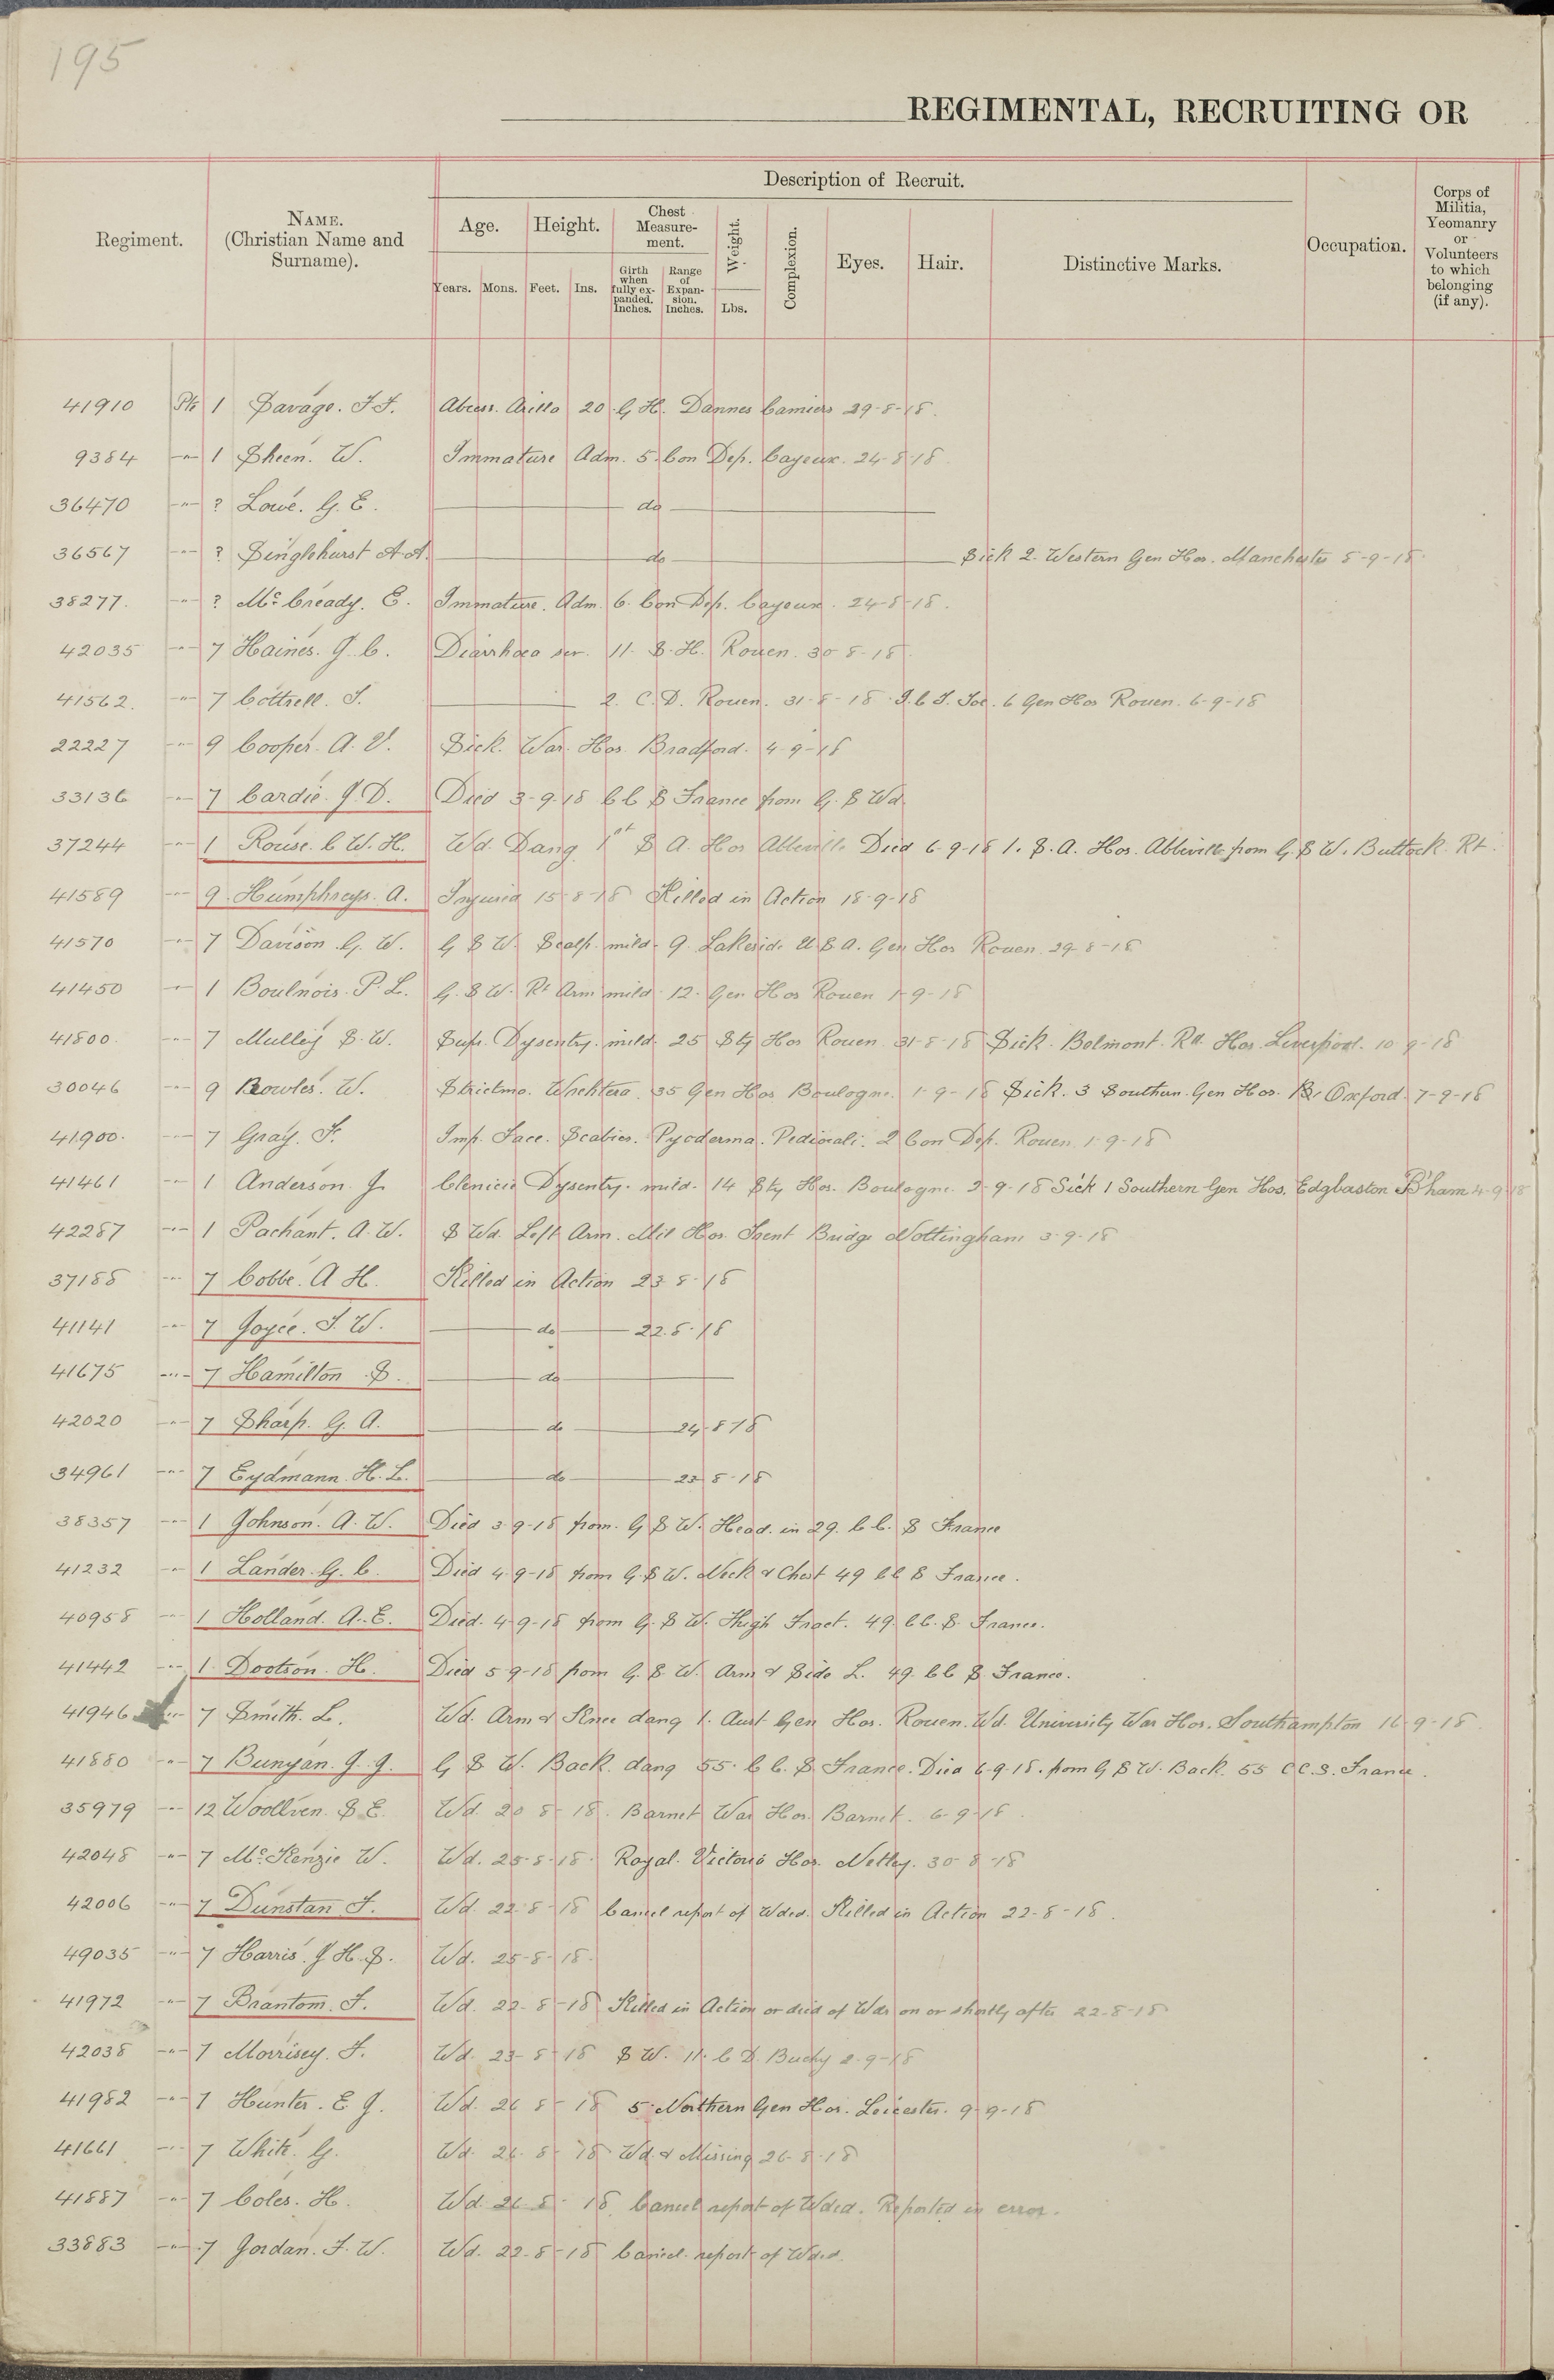 195
REGIMENTAL, RECRUITING OR
Regiment.
NAME.
(Christian Name and
Surname).
Description of Recruit.
Age.
Height.
Chest
Measure-
ment.
Weight.
Complexion.
Eyes.
Hair.
Distinctive Marks.
Occupation.
Corps of
Militia,
Yeomanry
or
Volunteers
to which
belonging
(if any).
Years.
Mons.
Feet.
Ins.
Girth
when
fully ex-
panded.
Inches.
Range
of
Expan-
sion.
Inches.
Lbs.
41910 Pte 1 Savage. F.F. Abcess. Axilla 20. G H. Dannes Camiers 29-8-18.
9384 -"- 1 Sheen. W. Immature Adm. 5. Con Dep. Cayeux. 24-8-18.
36470 -"- ? Lowe. G. E. do
36567 -"- ? Singlehurst A.A. do Sick 2. Western Gen Hos. Manchester 8-9-18.
38277. -"- ? Mc Cready. E. Immature. Adm. 6. Con Dep. Cayeux. 24-8-18.
42035 -"- 7 Haines. J. C. Diarrhoea sev. 11. S. H. Rouen. 30-8-18.
41562. -"- 7 Cottrell. F. 2. C.D. Rouen. 31-8-18 I.C.T. Toe. 6 Gen Hos Rouen. 6-9-18
22227 -"- 9 Cooper. A. V. Sick. War. Hos. Bradford. 4-9-18
33136 -"- 7 Cardie. J. D. Died 3-9-18 C C S France from G. S Wd.
37244 -"- 1 Rouse. C. W. H. Wd. Dang 1st S A. Hos Abbeville Died 6-9-18 1. S. A. Hos. Abbeville from G. S W. Buttock. Rt.
41589 -"- 9. Humphreys. A. Injured 15-8-18 Killed in Action 18-9-18
41570 -"- 7 Davison. G. W. G S W. Scalp. mild. 9. Lakeside U.S.A. Gen Hos Rouen. 29-8-18
41450 -"- 1 Boulnois. P. L. G. S W. Rt Arm mild. 12. Gen Hos Rouen 1-9-18
41800. -"- 7 Mulley S. W. Susp. Dysentry. mild. 25 Sty Hos Rouen. 31-8-18 Sick. Belmont. Rd. Hos. Liverpool. 10-9-18
30046 -"- 9 Bowles. W. 35 Gen Hos Boulogne. 1-9-18 Sick. 3 Southern. Gen Hos. Oxford. 7-9-18
41900. -"- 7 Gray. F. Imp. Face. Scabies. Pyoderma. Pediculi. 2 Con Dep. Rouen. 1-9-18
41461 -"- 1 Anderson. J. Clenicic Dysentry. mild. 14 Sty Hos. Boulogne. 2-9-18 Sick 1 Southern Gen Hos. Edgbaston B'ham 4-9-18
42287 -"- 1 Pachant. A. W. S Wd. Left Arm. Mil Hos. Trent Bridge Nottingham 3-9-18
37188 -"- 7 Cobbe. A H. Killed in Action 23-8-18
41141 -"- 7 Joyce. F. W. do 22.8.18
41675 -"- 7 Hamilton. S. do
42020 -"- 7 Sharp. G. A. do 24-8-18
34961 -"- 7 Eydmann. H. L. do 23-8-18
38357 -"- 1 Johnson. A. W. Died 3-9-18 from. G S W. Head. in 29. C C. S France
41232 -"- 1 Lander. G. C. Died 4-9-18 from G. S W. Neck & Chest 49 C C S France.
40958 -"- 1 Holland. A. E. Died. 4-9-18 from G. S W. Thigh Fract. 49. C C. S. France.
41442 -"- 1. Dootson. H. Died 5-9-18 from G. S. W. Arm & Side L. 49. C C S. France.
41946 -"- 7 Smith. L. Wd. Arm & Knee dang 1. Aust. Gen Hos. Rouen. Wd. University War Hos. Southampton 16-9-18.
41880 -"- 7 Bunyan. J. J. G S W. Back. dang 55. C C. S. France. Died 6-9-18. from G S W. Back. 55 C C. S. France.
35979 -"- 12 Woollven. S E. Wd. 20-8-18. Barnet War Hos. Barnet. 6-9-18.
42048 -"- 7 Mc Kenzie W. Wd. 25-8-18. Royal. Victoria Hos. Netley. 30-8-18
42006 -"- 7 Dunstan F. Wd. 22-8-18 Cancel report of Wded. Killed in Action 22-8-18.
49035 -"- 7 Harris. J H. S. Wd. 25-8-18.
41972 -"- 7 Brantom. F. Wd. 22-8-18 Killed in Action or died of Wds on or shortly after 22-8-18
42038 -"- 7 Morrisey. F. Wd. 23-8-18 S W. 11. C D. Buchy 2-9-18
41982 -"- 7 Hunter. E J. Wd. 26-8-18 5. Northern Gen Hos. Leicester. 9-9-18
41661 -"- 7 White. G. Wd. 26-8-18 Wd & Missing 26-8-18
41887 -"- 7 Coles. H. Wd. 26-8-18. Cancel report of Wded. Reported in error.
33883 -"- 7 Jordan. F. W. Wd. 22-8-18 Cancel. report of Wded.